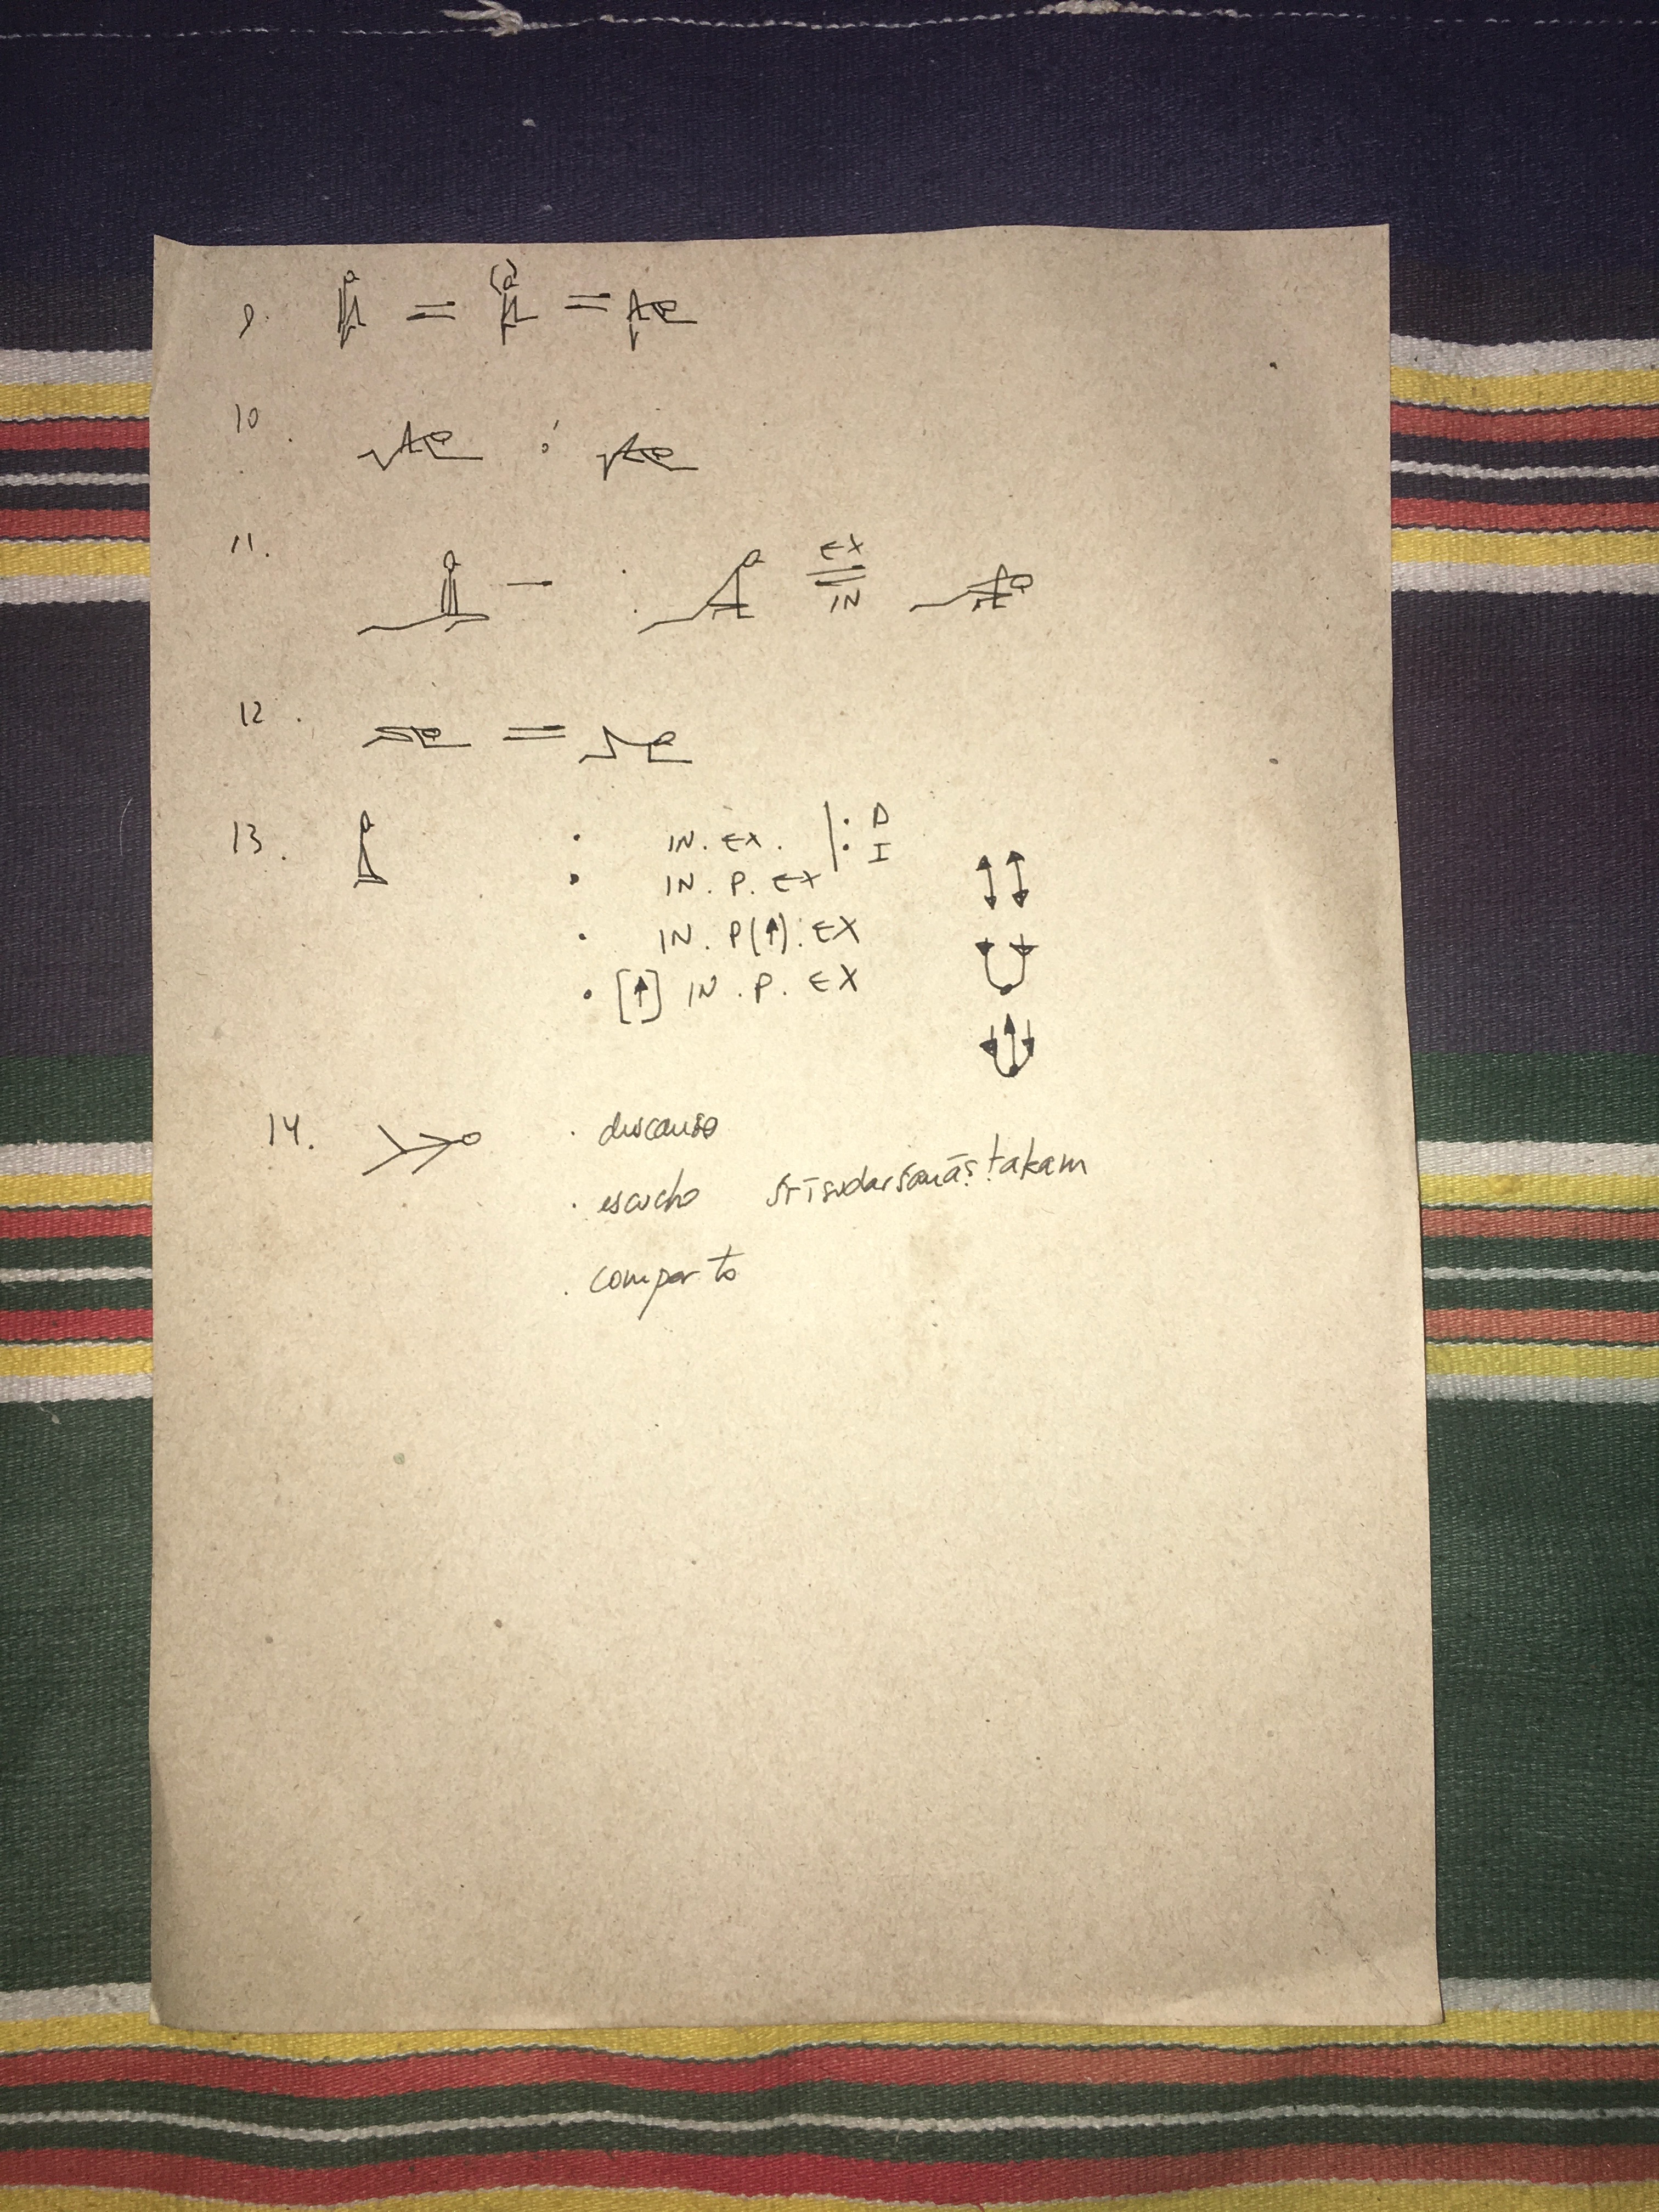 9.
10.
11. EX
IN
12.
13. IN. EX. : D
: I
IN. P. EX
IN. P(↑). EX
[↑] IN. P. EX
14. descanso
escucho śrīsudarśanāṣṭakam
comparto